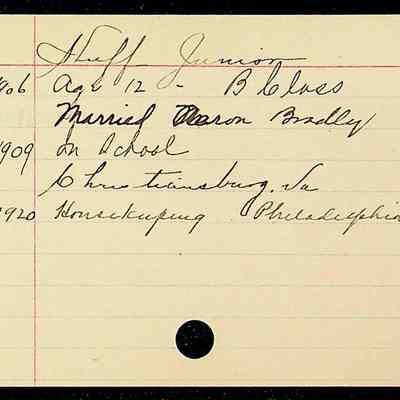 Huff Junior
1906 Age 12 - B Class
Married Aaron Bradley
1909 In School
Christiansburg, Va
1920 Housekeeping Philadelphia